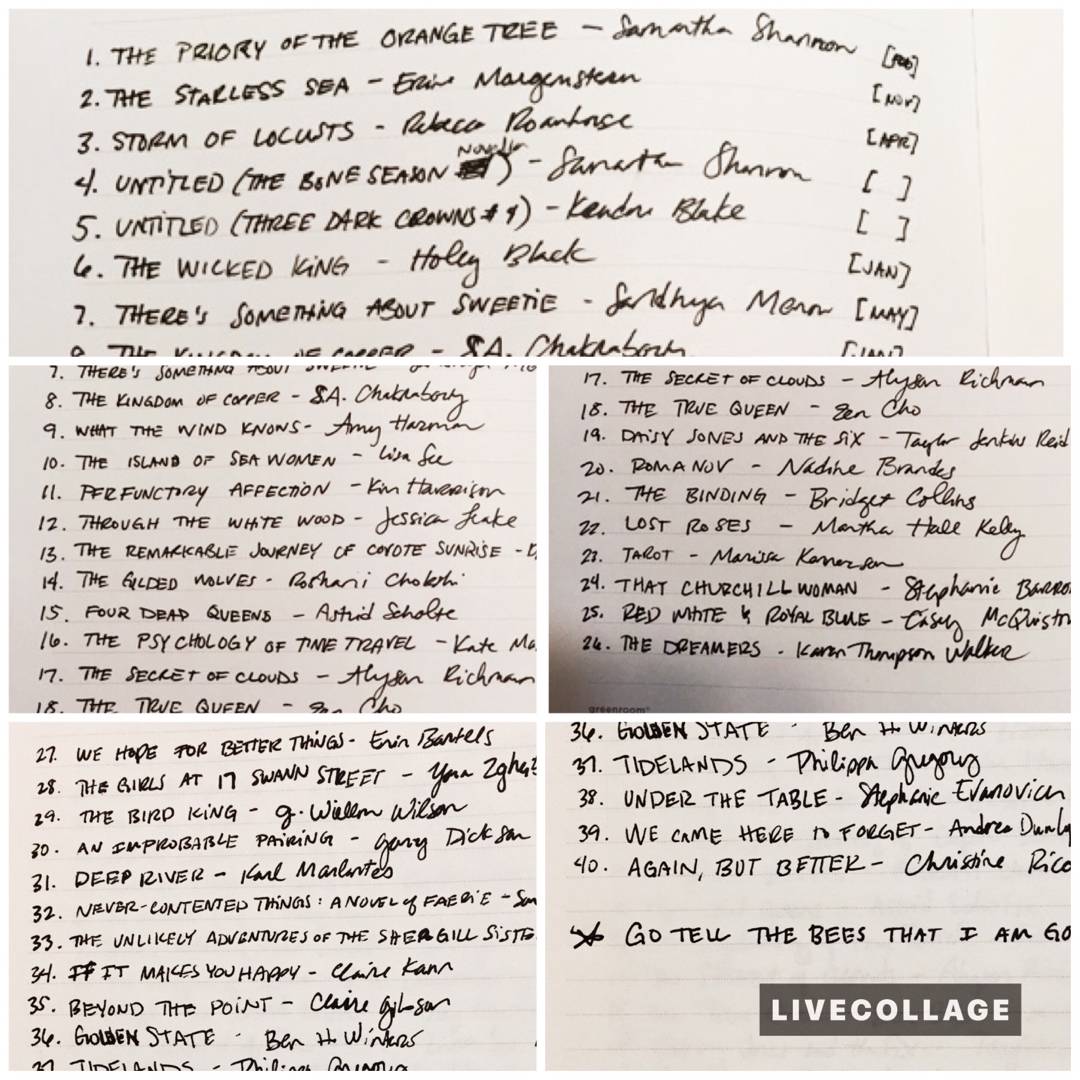 1. THE PRIORY OF THE ORANGE TREE – Samantha Shannon [FEB]
2. THE STARLESS SEA – Erin Morgenstern [NOV]
3. STORM OF LOCUSTS - Rebecca Roanhorse [APR]
4. UNTITLED (THE BONE SEASON Novella) - Samantha Shannon [ ]
5. UNTITLED (THREE DARK CROWNS # 4) - Kendare Blake [ ]
6. THE WICKED KING - Holly Black [JAN]
7. THERE'S SOMETHING ABOUT SWEETIE - Sandhya Menon [MAY]
8. THE KINGDOM OF COPPER - S.A. Chakraborty [JAN]
7. THERE'S SOMETHING ABOUT SWEETIE -
8. THE KINGDOM OF COPPER - S.A. Chakraborty
9. WHAT THE WIND KNOWS - Amy Harmon
10. THE ISLAND OF SEA WOMEN - Lisa See
11. PERFUNCTORY AFFECTION - Kim Harrison
12. THROUGH THE WHITE WOOD - Jessica Leake
13. THE REMARKABLE JOURNEY OF COYOTE SUNRISE - D
14. THE GILDED WOLVES - Roshani Chokshi
15. FOUR DEAD QUEENS - Astrid Scholte
16. THE PSYCHOLOGY OF TIME TRAVEL - Kate Ma
17. THE SECRET OF CLOUDS - Alyson Richman
18. THE TRUE QUEEN - Zen Cho
17. THE SECRET OF CLOUDS - Alyson Richman
18. THE TRUE QUEEN - Zen Cho
19. DAISY JONES AND THE SIX - Taylor Jenkins Reid
20. ROMANOV - Nadine Brandes
21. THE BINDING - Bridget Collins
22. LOST ROSES - Martha Hall Kelly
23. TAROT - Marissa Kennerson
24. THAT CHURCHILL WOMAN - Stephanie Barro
25. RED WHITE & ROYAL BLUE - Casey McQuisto
26. THE DREAMERS - Karen Thompson Walker
greenroom
27. WE HOPE FOR BETTER THINGS - Erin Bartels
28. THE GIRLS AT 17 SWANN STREET - Yara Zghei
29. THE BIRD KING - G. Willow Wilson
30. AN IMPROBABLE PAIRING - Gary Dickson
31. DEEP RIVER - Karl Marlantes
32. NEVER-CONTENTED THINGS: A NOVEL of FAERIE - Sa
33. THE UNLIKELY ADVENTURES OF THE SHERGILL SISTE
34. IF IT MAKES YOU HAPPY - Claire Kann
35. BEYOND THE POINT - Claire Gibson
36. GOLDEN STATE - Ben H. Winters
37. TIDELANDS - Philippa Gregory
36. GOLDEN STATE - Ben H. Winters
37. TIDELANDS - Philippa Gregory
38. UNDER THE TABLE - Stephanie Evanovich
39. WE CAME HERE TO FORGET - Andrea Dunlo
40. AGAIN, BUT BETTER - Christine Ricc
* GO TELL THE BEES THAT I AM GO
LIVECOLLAGE